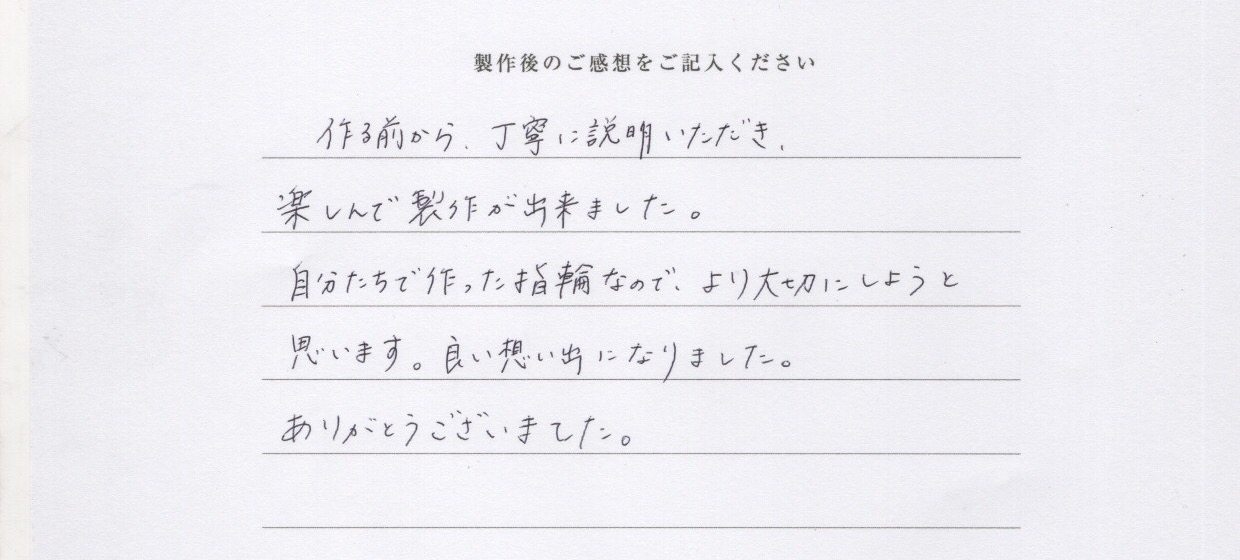 製作後のご感想をご記入ください
作る前から、丁寧に説明いただき、
楽しんで製作が出来ました。
自分たちで作った指輪なので、より大切にしようと
思います。良い想い出になりました。
ありがとうございました。